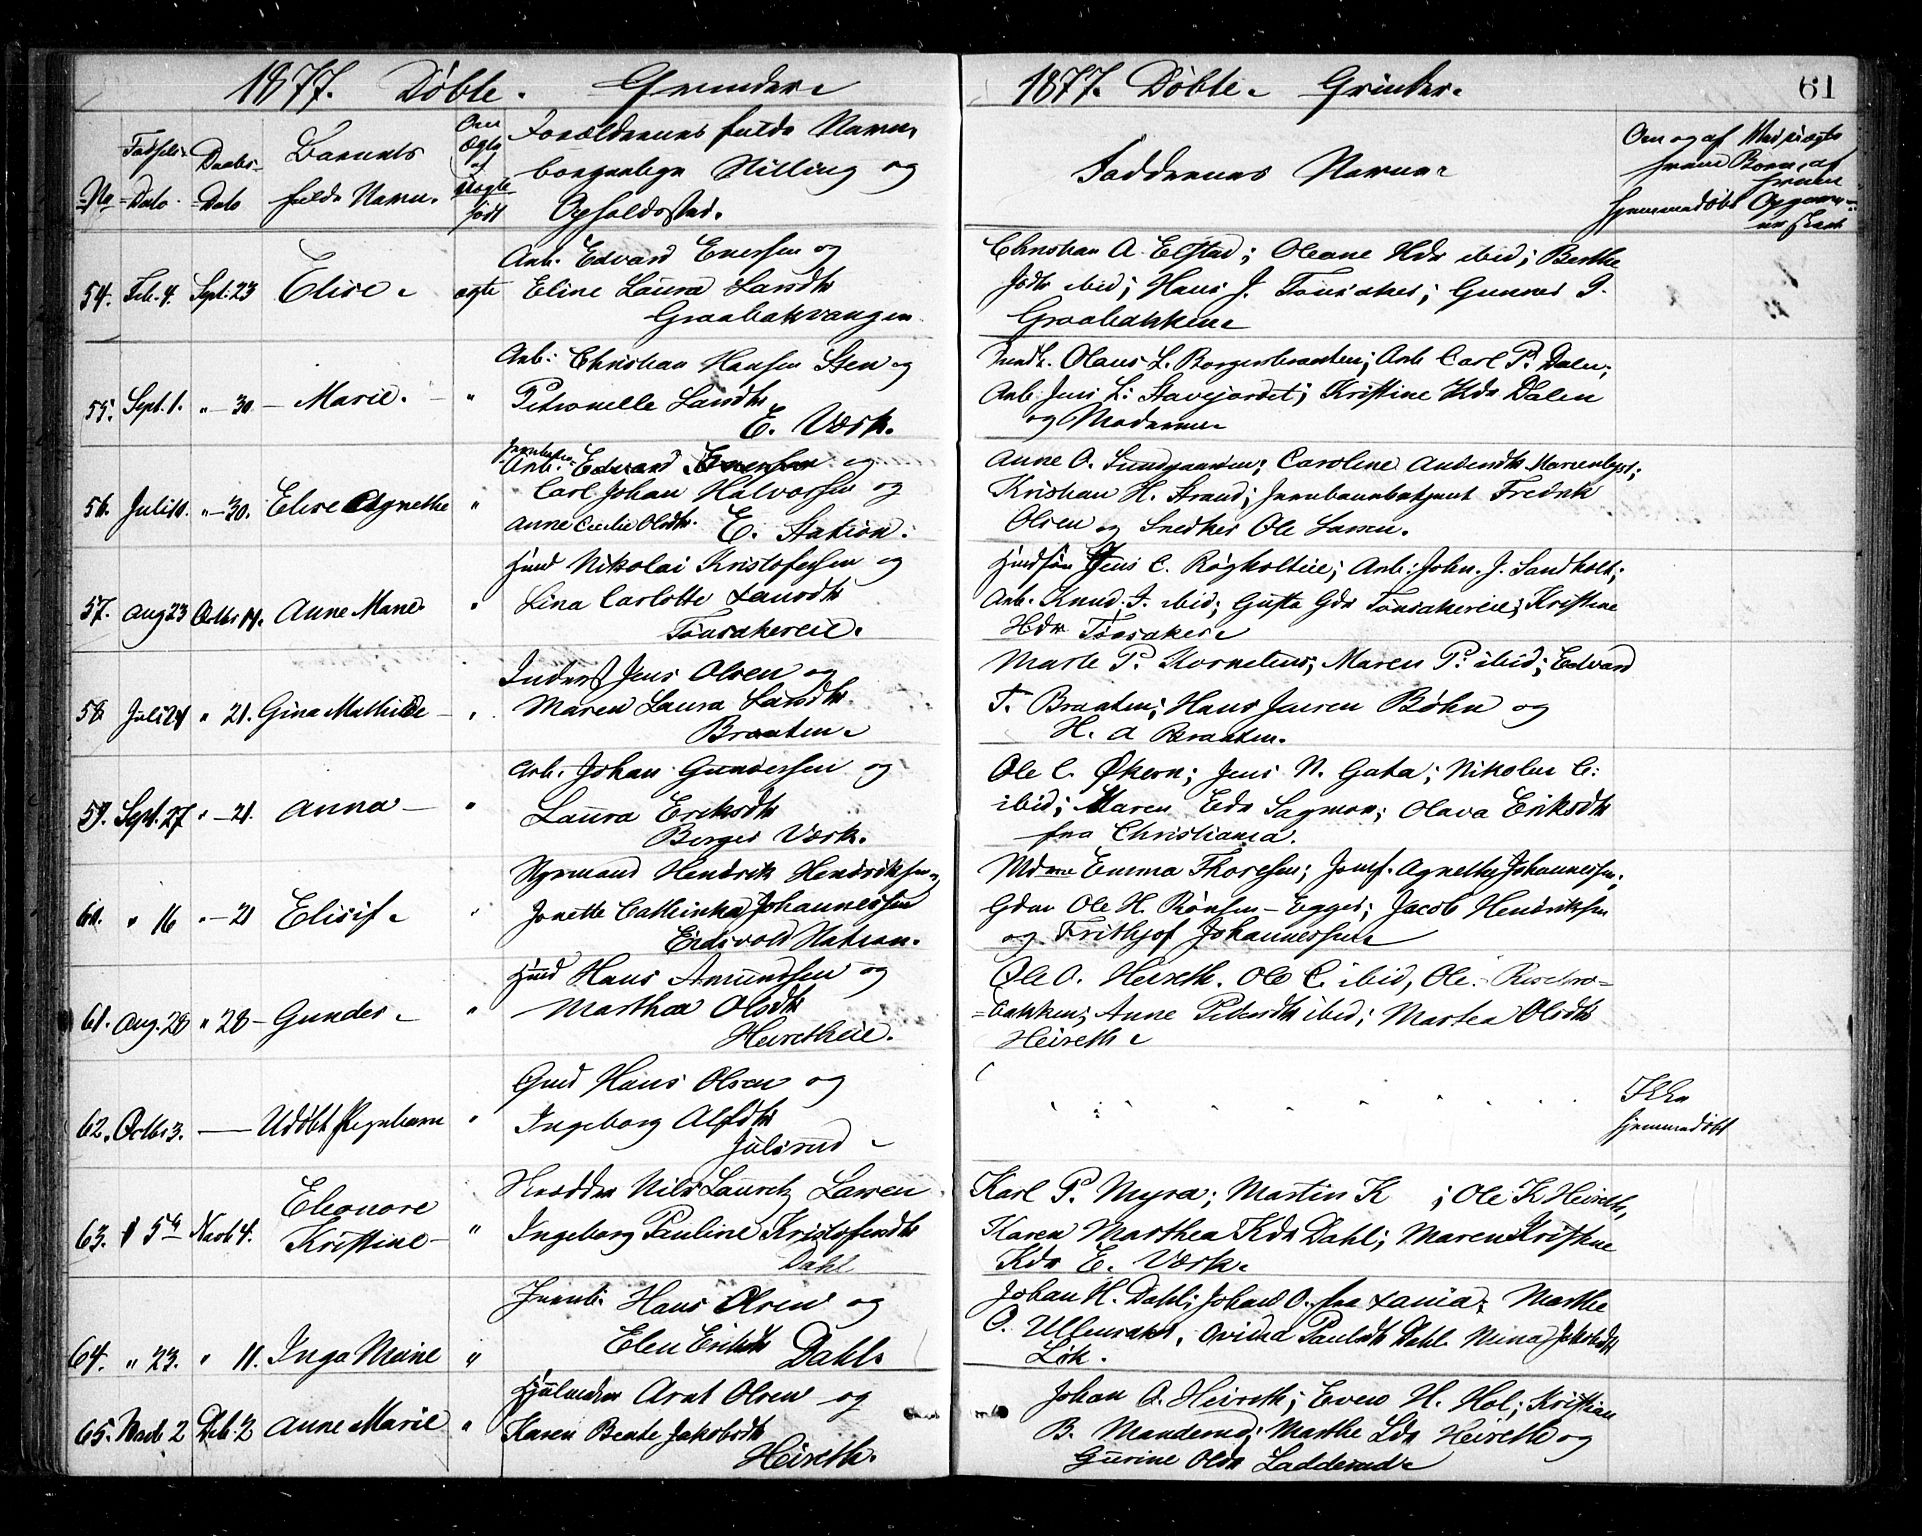 1877. Døbte. Qvinder.
No
Fødsels-
Dato.
Daabs-
Dato
Barnets
fulde Navn.
Om
Ægte
el
Uægte
født
Forældrenes fulde Navne,
borgerlige Stilling og
Opholdssted.
54. Feb. 4. Sept. 23 Elise. ægte
Arb. Edvard Enersen og
Eline Laura Larsdtr
Graabakvangen
55. Sept. 1. " - 30 - Marie. - "
Arb: Christian Hansen Sten og
Petronelle Larsdtr
E. Værk.
56. Juli 10. " - 30. Elise Agnethe "
Arb. Edvard Enersen og
Carl Johan Halvorsen og
Anne Cecilie Olsdtr. E. Station.
57. Aug 23 Octbr 14. Anne Marie "
Husmd Nikolai Kristofersen og
Lina Carlotte Larsdtr
Tönsakereie.
58 Juli 24 " 21. Gina Mathilde - "
Inderst Jens Olsen og
Maren Laura Larsdtr
Braaten.
59. Sept. 27 " - 21. Anna - "
Arb. Johan Gundersen og
Laura Eriksdtr
Borger Værk.
60. " 16 " - 21 Elisif. "
Styrmand Hendrik Hendriksen og
Jonette Cathinka Johannessen
Eidsvold Station.
61. Aug. 28 " 28 - Gunder. "
Husmd Hans Amundsen og
Marthea Olsdtr
Heiretheie.
62. Octbr 3. — Udøbt Pigebarn "
Gmd Hans Olsen og
Ingeborg Alfsdtr
Julsrud
63. " 5te Novb 4. Eleonore
Kristine - "
Skrædder Nils Lauretz Larsen
Ingeborg Pauline Kristofersdtr
Dahl
64. " 23. " 11. Inga Marie "
Jernb. Hans Olsen og
Elen Eriksdtr Dahl.
65. Novb 2 Deb. 2 Anne Marie "
Hjulmd Arnt Olsen og
Karen Beate Jakobsdtr
Heireth.
1877. Døbte. Qvinder.
61
Faddernes Navne.
Om og af
hvem
hjemmedøbt
Christian A. Elstad; Oleane Hdr ibid; Berthe
Jsdtr ibid; Hans J. Tönsaker; Gunner P.
Graabakken
Snedk. Olaus L. Borgersbraaten; Arb Carl P. Dalen;
Arb. Jens L. Stavejordet; Kristine Kdr Dalen
og Moderen
Anne O. Sundgaarden; Caroline Andersdtr Marienlyst;
Kristian H. Strand; Jernbanebetjent Fredrik
Olsen og Snedker Ole Larsen.
Jens C. Røgholteie; Arb: John. J. Sandholt;
Arb. Knud A. ibid; Gusta Gdr Tönsakereie; Kristine
Hdr Tönsaker
Marte P. Kornelius; Maren P. ibid; Edvard
T. Braaten; Hans Jensen Bøhn og
H. A Braaten.
Ole C. Økern; Jens N. Gata; Nikolai C:
ibid; Maren Edr Sagmoen; Olava Eriksdtr
fra Christiania.
Mdme Emma Thoresen; Jomf. Agnethe Johannessen;
Gdm Ole H. Rönsen - Egge; Jacob Hendriksen
og Frithjof Johannessen
Ole O. Heireth. Ole C. ibid, Ole
bakken; Anne Pedersdtr ibid; Martea Olsdtr
Heireth
Ikke
hjemmedøbt
Karl P. Myra; Martin K ; Ole K Heireth,
Karen Marthea Kdr Dahl; Maren Kristine
Kdr E. Værk.
Johan H. Dahl; Johan O. fra Xania; Marthe
O. Ullensaker, Ovidia Paulsdtr Dahl Nina Jakobsdtr
Lök.
Johan O. Heireth; Even H. Hol; Kristian
B. Manderud; Marthe Ldr Heireth og
Gurine Olsdr Ladderud